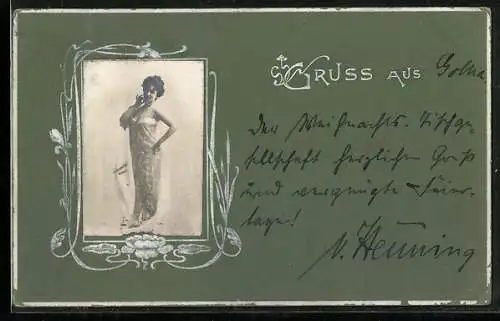 Gruss aus Gotha
Der Weihnachts-Tischge-
sellschaft herzlichen Gruß
und vergnügte Feier-
tage!
Henning